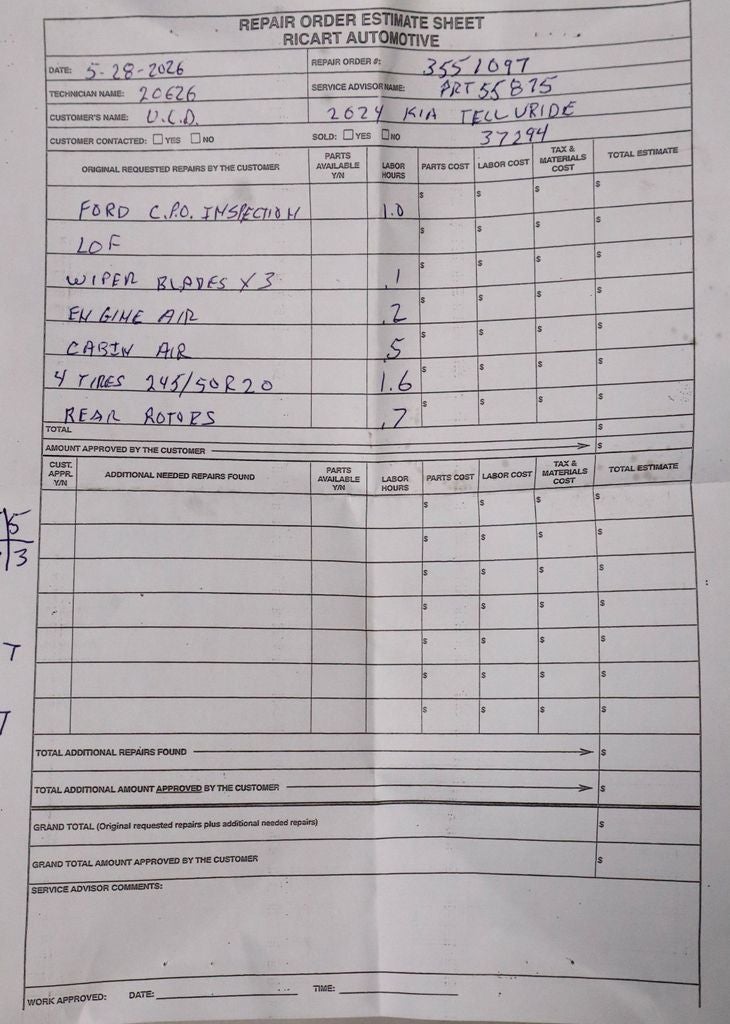 REPAIR ORDER ESTIMATE SHEET
RICART AUTOMOTIVE
DATE: 5-28-2026
REPAIR ORDER #: 3551097
TECHNICIAN NAME: 20626
SERVICE ADVISOR NAME: PRT 55875
CUSTOMER'S NAME: U.C.D. 2024 KIA TELLURIDE
CUSTOMER CONTACTED: ☐ YES ☐ NO SOLD: ☐ YES ☐ NO 37294
ORIGINAL REQUESTED REPAIRS BY THE CUSTOMER PARTS AVAILABLE Y/N LABOR HOURS PARTS COST LABOR COST TAX & MATERIALS COST TOTAL ESTIMATE
FORD C.P.O. INSPECTION 1.0 $ $ $ $
LOF $ $ $ $
WIPER BLADES X 3 .1 $ $ $ $
ENGINE AIR .2 $ $ $ $
CABIN AIR .5 $ $ $ $
4 TIRES 245/50R20 1.6 $ $ $ $
REAR ROTORS .7 $ $ $ $
TOTAL $
AMOUNT APPROVED BY THE CUSTOMER $
CUST. APPR. Y/N ADDITIONAL NEEDED REPAIRS FOUND PARTS AVAILABLE Y/N LABOR HOURS PARTS COST LABOR COST TAX & MATERIALS COST TOTAL ESTIMATE
$ $ $ $
5 $ $ $ $
3 $ $ $ $
$ $ $ $
T $ $ $ $
$ $ $ $
T $ $ $ $
TOTAL ADDITIONAL REPAIRS FOUND $
TOTAL ADDITIONAL AMOUNT APPROVED BY THE CUSTOMER $
GRAND TOTAL (Original requested repairs plus additional needed repairs) $
GRAND TOTAL AMOUNT APPROVED BY THE CUSTOMER $
SERVICE ADVISOR COMMENTS:
WORK APPROVED: DATE: TIME: